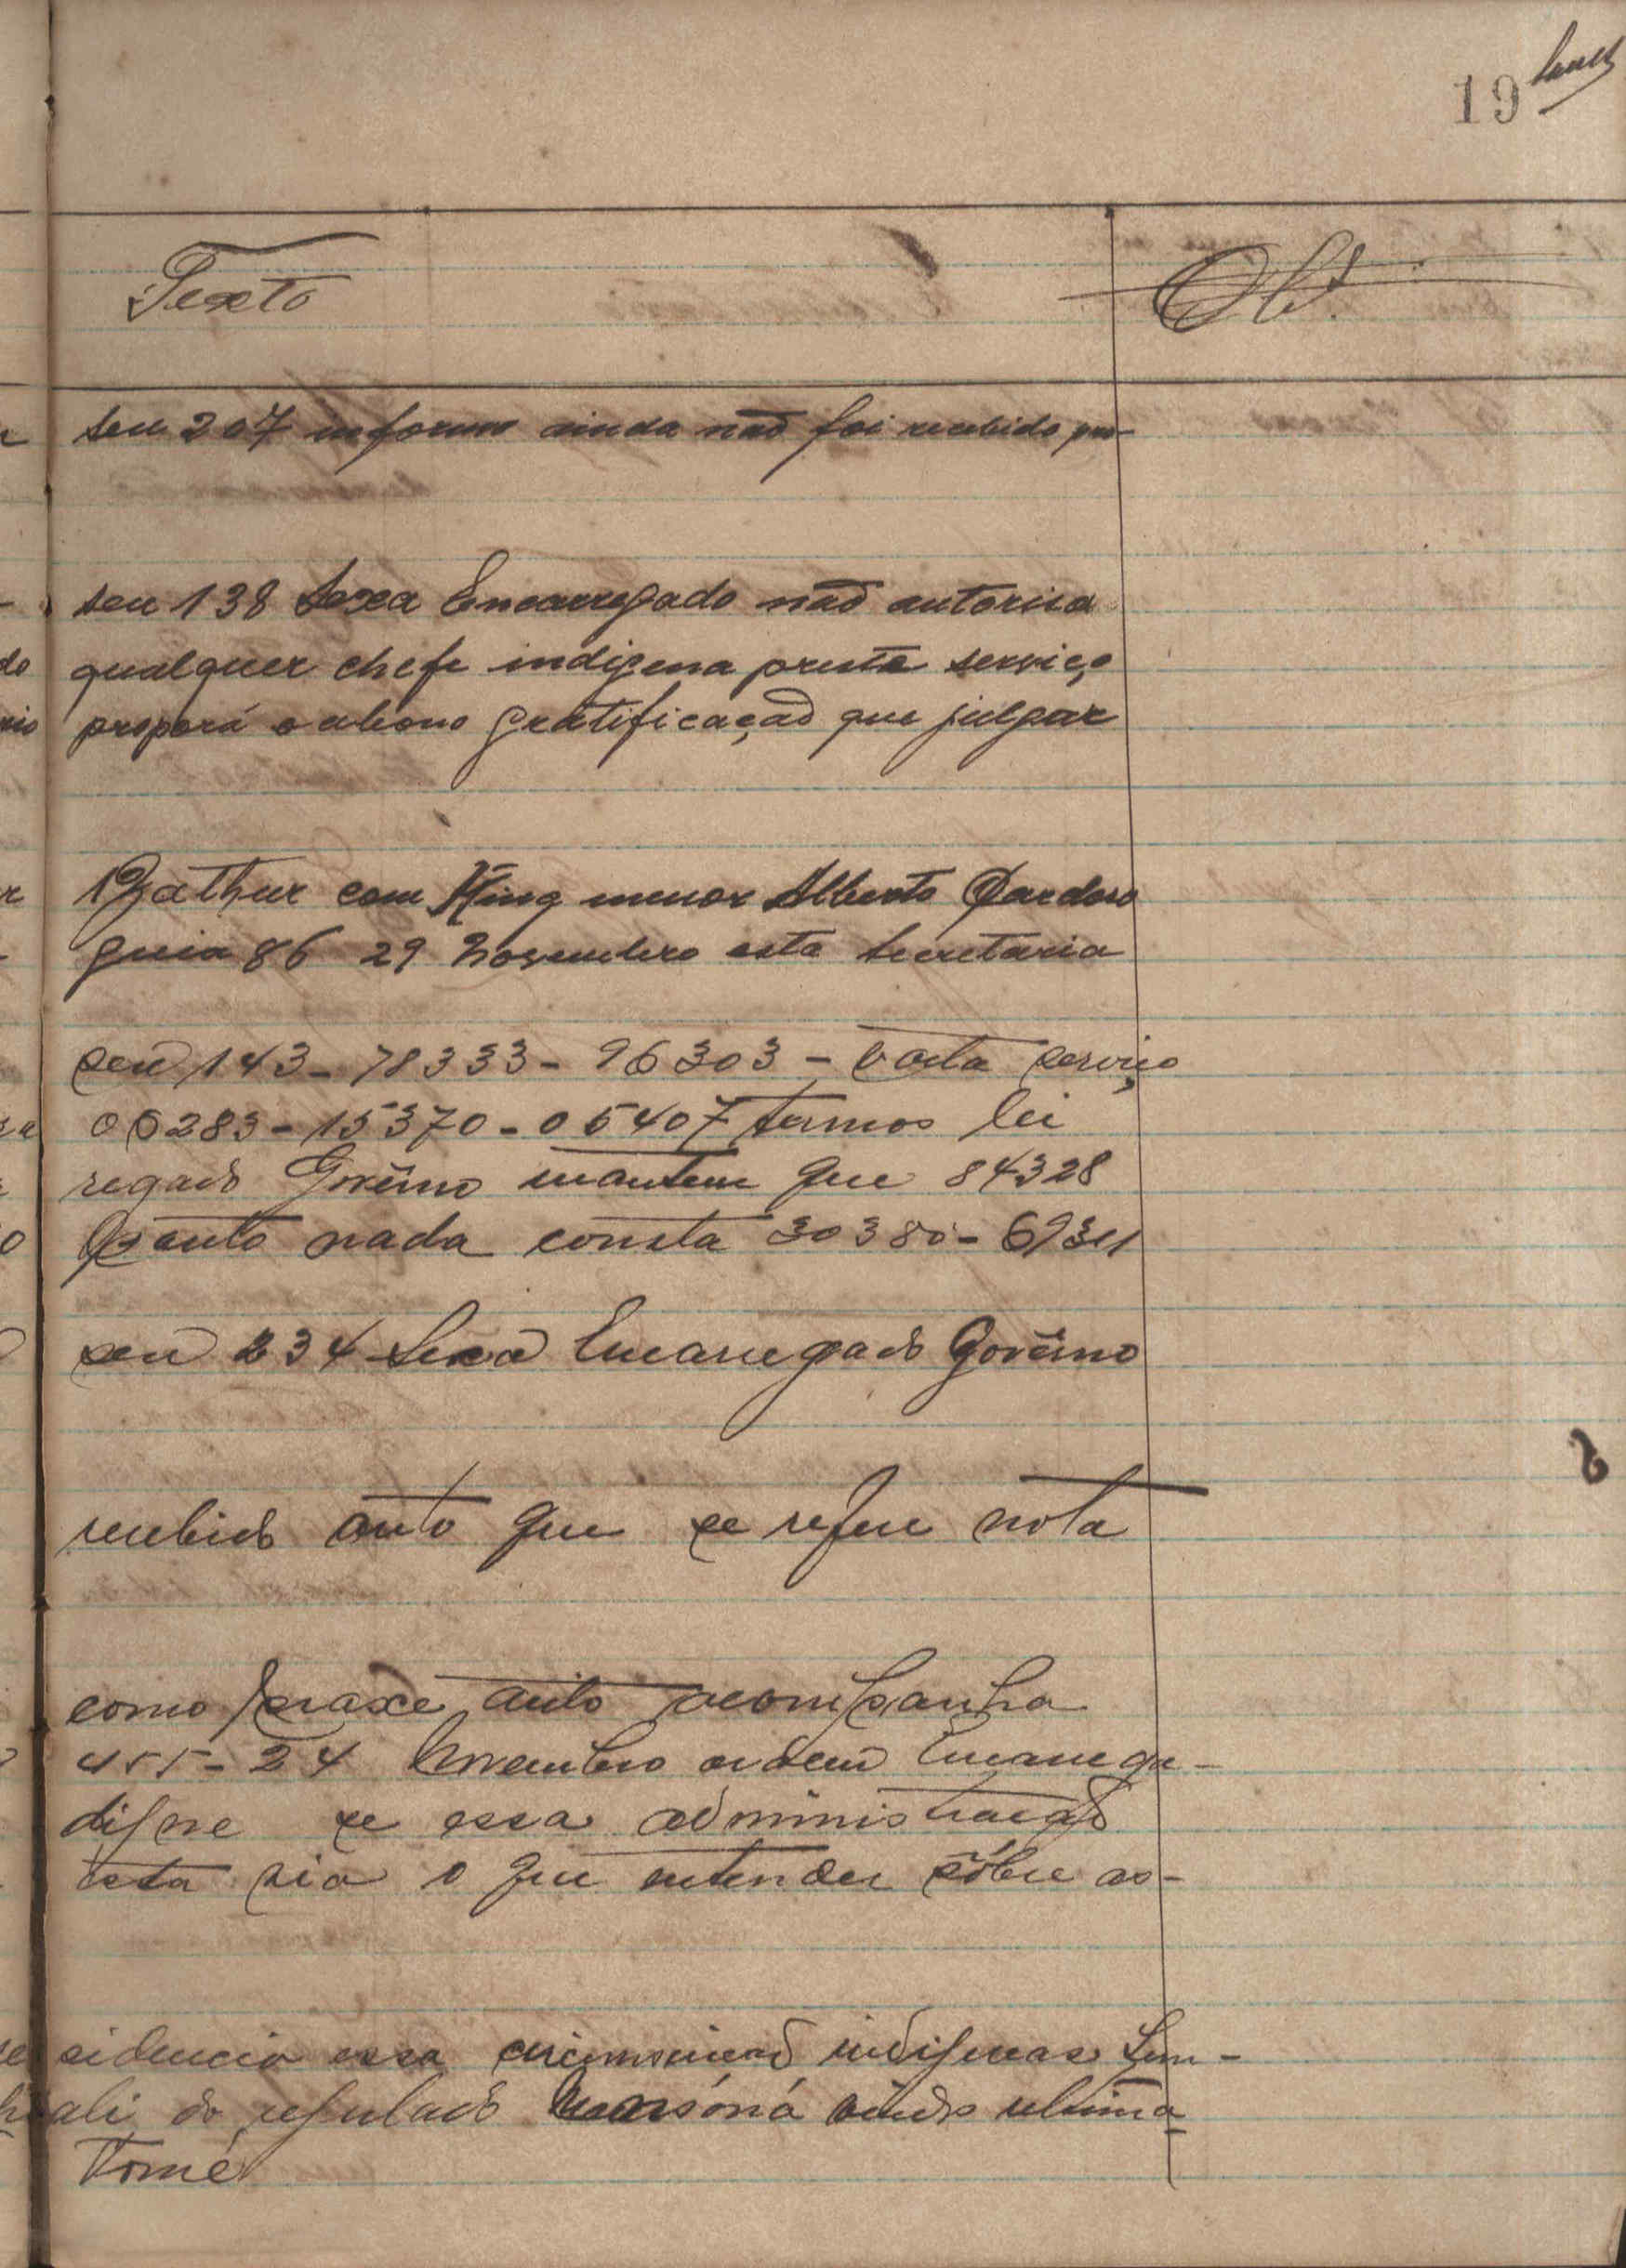 19
Texto
seu 207 informo ainda não foi recebido por
seu 138 Sexa Encarregado não autorisa
qualquer chefe indigena preste serviço
proporá o abono gratificação que julgar
Bathur com King menor Alberto Cardoso
guia 86 29 Novembro esta secretaria
seu 143 - 78333 - 96303 - serviço
05283 - 15370 - 05407 termos lei
regado Govêrno mantem que 84328
nada consta 30380 -
seu 234 Sexa Encarregado Govêrno
recebido auto que se refere nota
como praxe auto acompanha
455 - 24 Novembro ordem Encarrega-
digne se essa administração
esta sia o que entender sôbre as-
sidencia essa circunscrição indigenas
ali do regulado ultima
Tomé